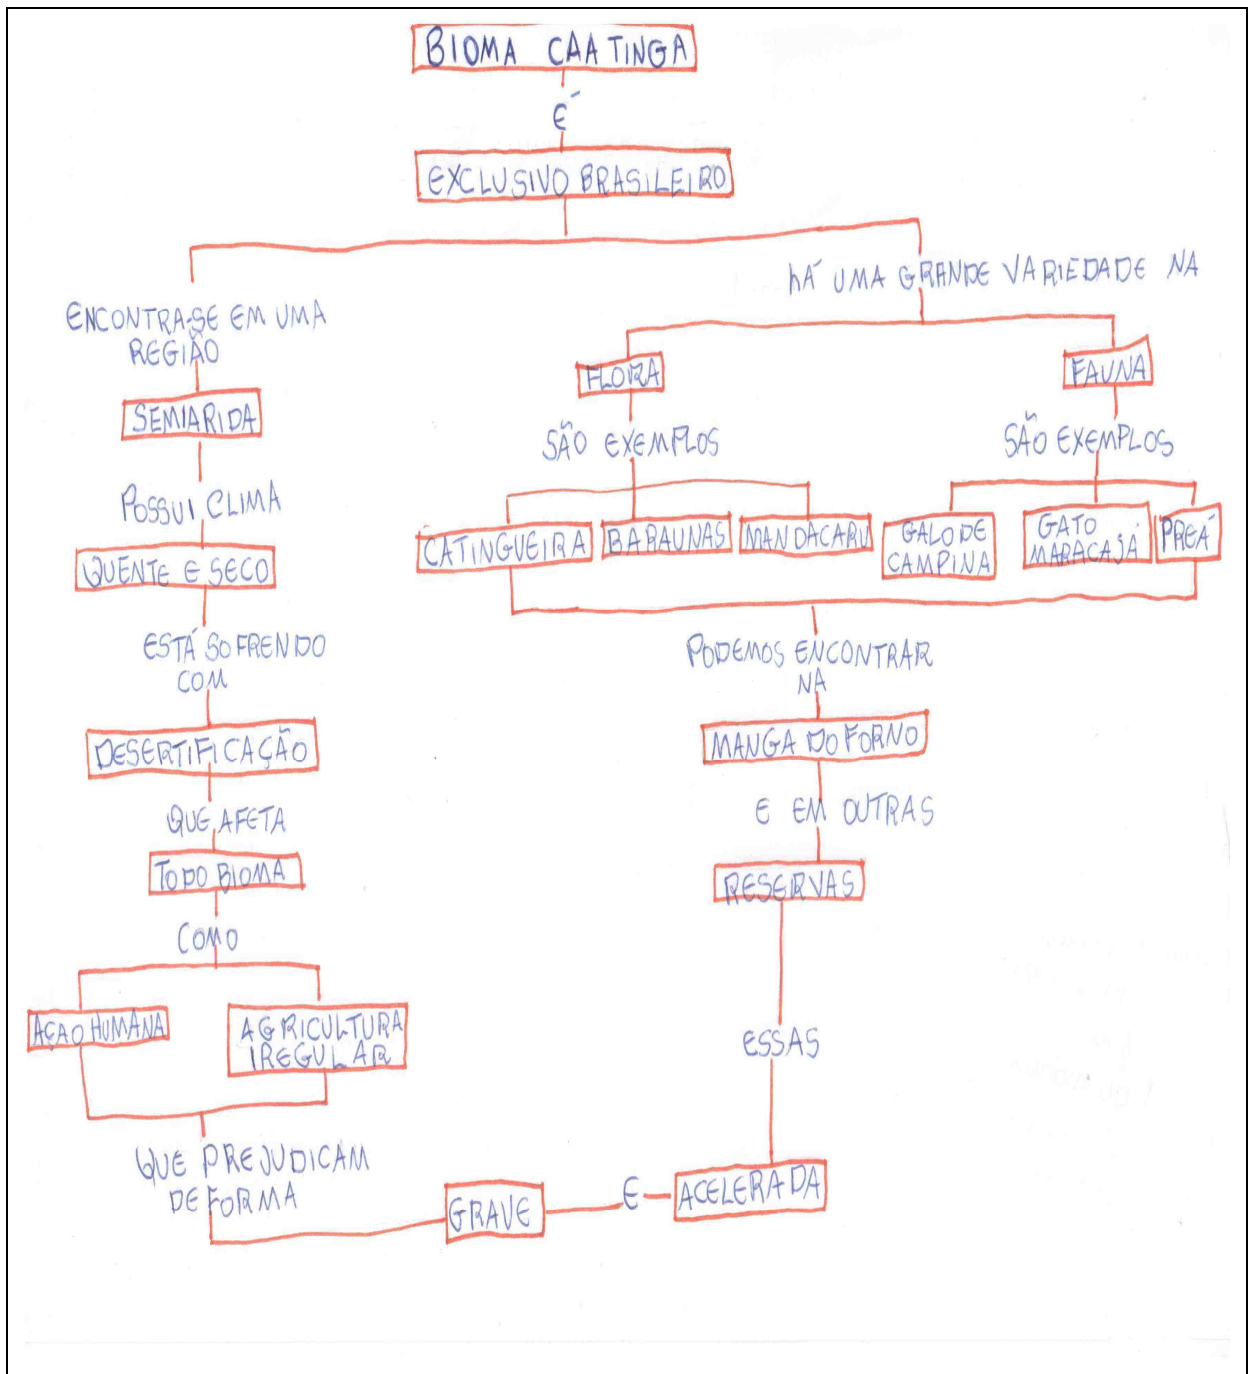 BIOMA CAATINGA
É
EXCLUSIVO BRASILEIRO
ENCONTRA-SE EM UMA
REGIÃO
SEMIARIDA
POSSUI CLIMA
QUENTE E SECO
ESTÁ SOFRENDO
COM
DESERTIFICAÇÃO
QUE AFETA
TODO BIOMA
COMO
AÇAO HUMANA
AGRICULTURA
IREGULAR
QUE PREJUDICAM
DE FORMA
GRAVE
E
ACELERADA
hÁ UMA GRANDE VARIEDADE NA
FLORA
SÃO EXEMPLOS
CATINGUEIRA
BARAUNAS
MANDACARU
FAUNA
SÃO EXEMPLOS
GALO DE
CAMPINA
GATO
MARACAJÁ
PREÁ
PODEMOS ENCONTRAR
NA
MANGA DO FORNO
E EM OUTRAS
RESERVAS
ESSAS